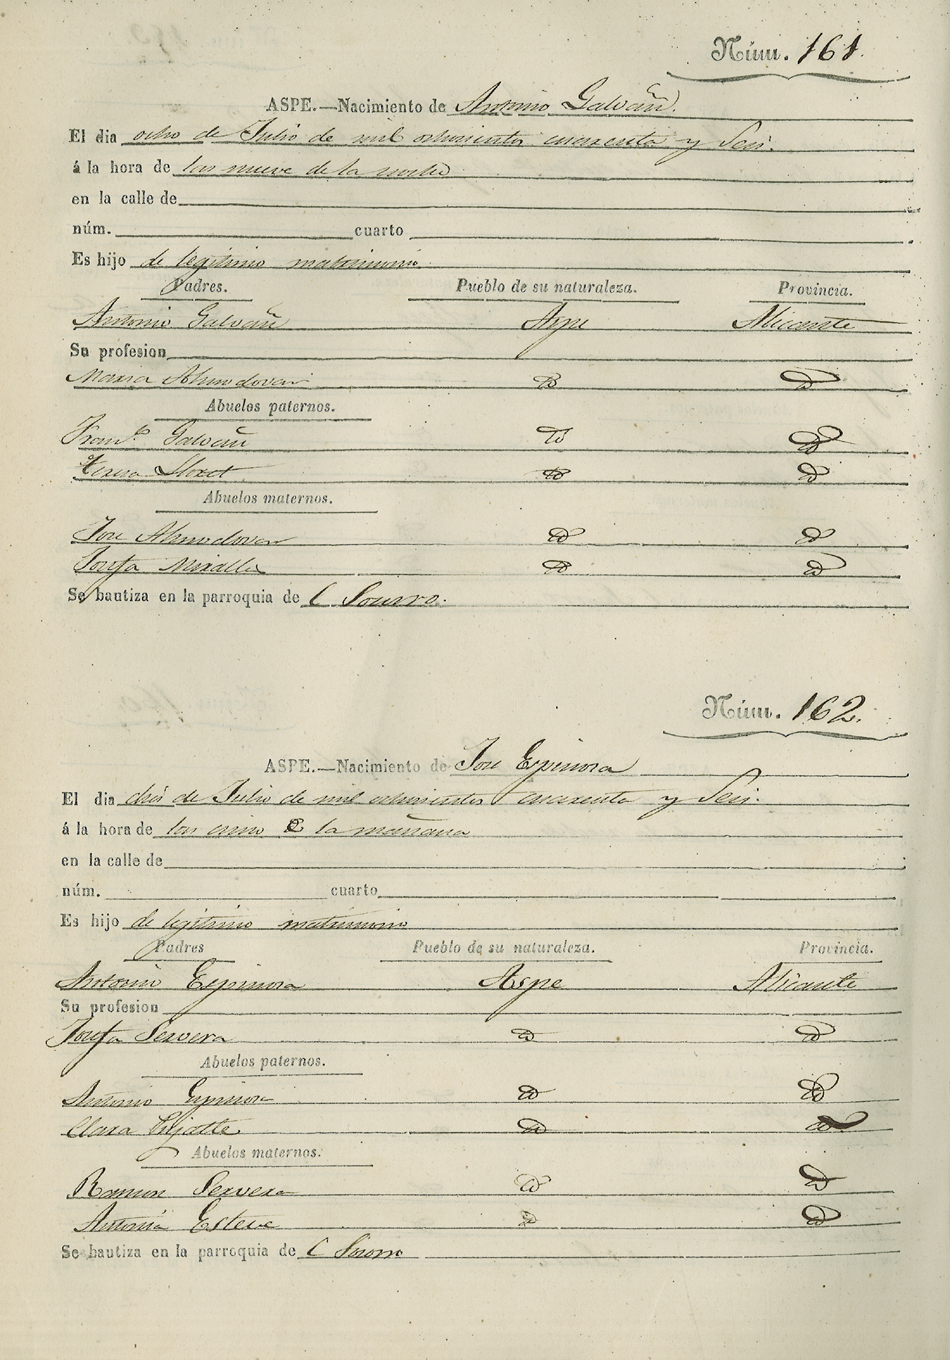 Núm. 161.
ASPE.—Nacimiento de Antonio Galvañ.
El dia ocho de Julio de mil ochocientos cuarenta y Seis.
á la hora de las nueve de la noche
en la calle de
núm. cuarto
Es hijo de legitimo matrimonio
Padres. Pueblo de su naturaleza. Provincia.
Antonio Galvañ Aspe Alicante
Su profesion
Maria Almodovar id id
Abuelos paternos.
Franco. Galvañ id id
Teresa Lloret id id
Abuelos maternos.
Jose Almodovar id id
Josefa Miralles id id
Se bautiza en la parroquia de l Socorro.
Núm. 162.
ASPE.—Nacimiento de Jose Espinosa
El dia dies de Julio de mil ochocientos cuarenta y Seis.
á la hora de las cinco de la mañana
en la calle de
núm. cuarto
Es hijo de legitimo matrimonio
Padres Pueblo de su naturaleza. Provincia.
Antonio Espinosa Aspe Alicante
Su profesion
Josefa Servera id id
Abuelos paternos.
Antonio Espinosa id id
Clara id id
Abuelos maternos.
Ramon Servera id id
Antonia Esteve id id
Se bautiza en la parroquia de l Socorro